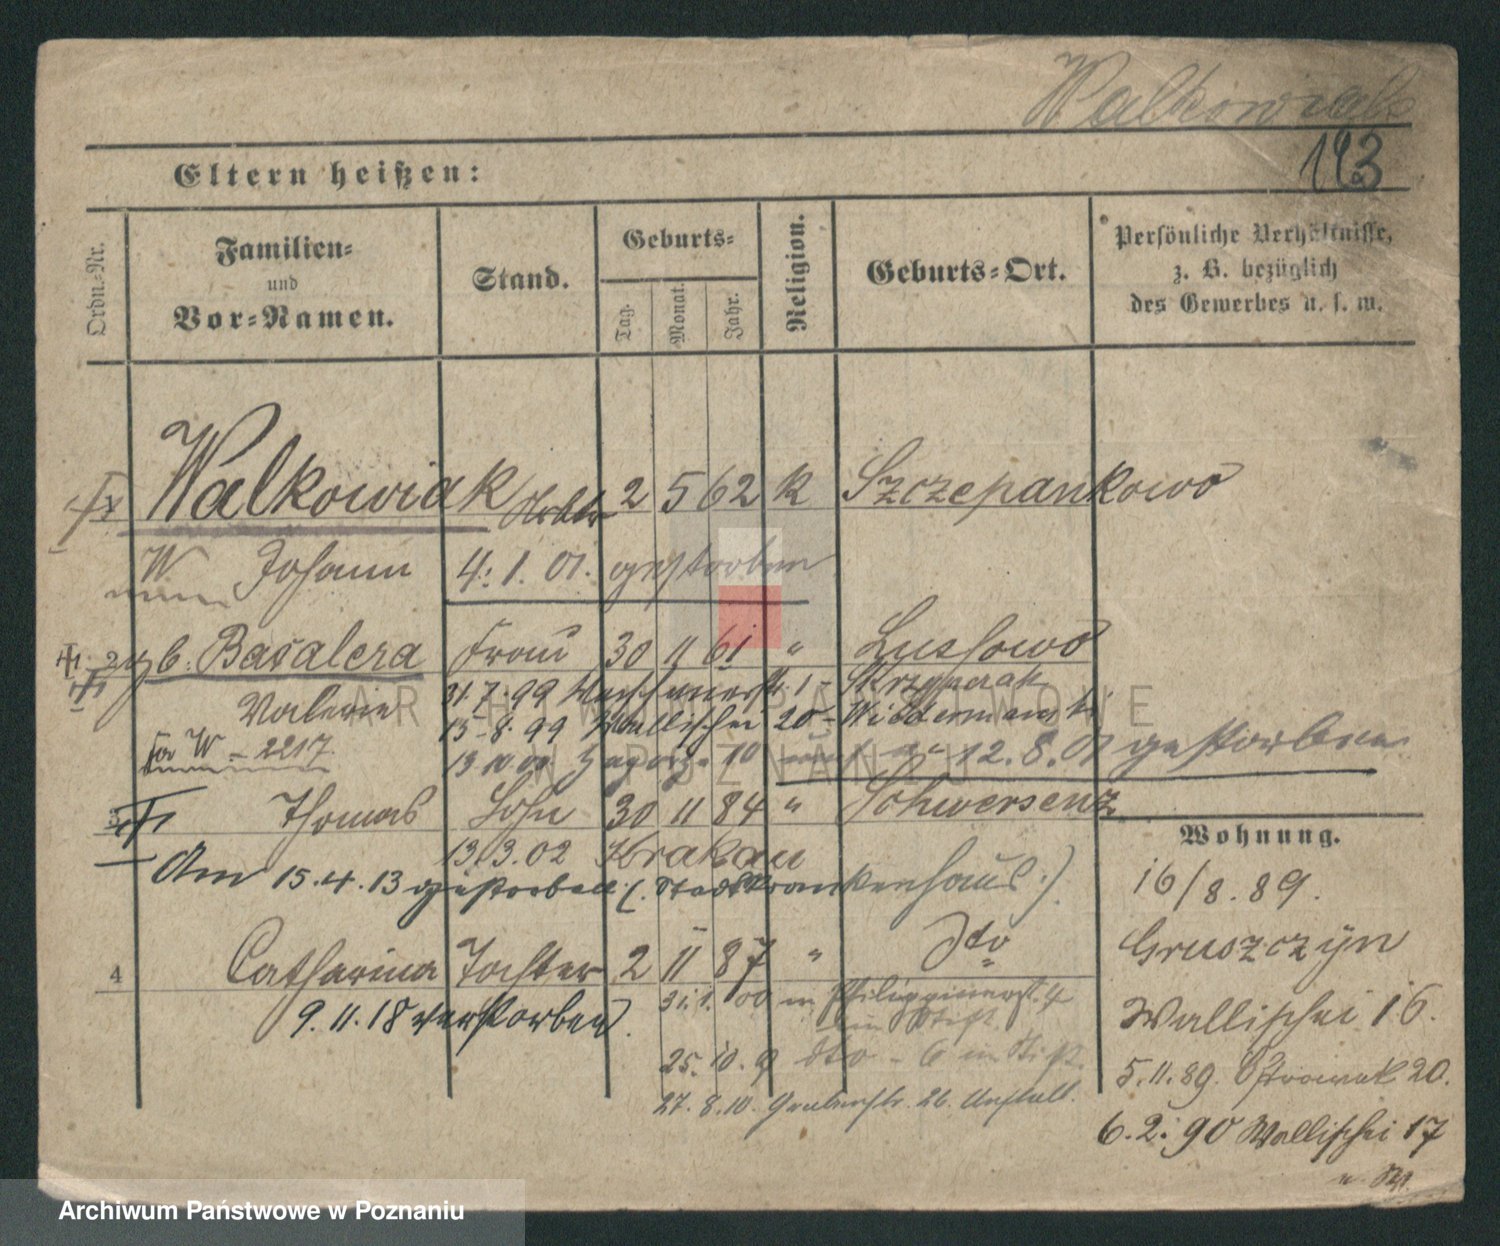 Walkowiak
Eltern heißen:
Ordn.-Nr.
Familien-
und
Vor-Namen.
Stand.
Geburts-
Tag.
Monat.
Jahr.
Religion.
Geburts-Ort.
Persönliche Verhältnisse,
z. B. bezüglich
des Gewerbes u. s. w.
Walkowiak 2 5 62 k Szczepankowo
W Johann 4. 1. 01. gestorben
2 gb. Basalera Frau 30 11 61 " Lussowo
Valerie 31.7.99 1 Skrzypczak
15.8.99 Wallischei 20
W - 2217 10 12.8.01 gestorben
3 Thomas Sohn 30 11 84 " Schwersenz
13.3.02 Krakau
Am 15.4.13 gestorben (. Stadtkrankenhaus .)
4 Catharina Tochter 2 11 87 " dto
9.11.18 verstorben.
31.1.00 in Philippinerst. 4
im Stift
25.10.9 dto - 6 im Stift
27.8.10. Grabenstr. 26. Anstalt.
Wohnung.
16/8.89.
Gruszczyn
Wallischei 16.
5.11.89. Ostrowek 20.
6.2.90 Wallischei 17
ARCHIWUM PAŃSTWOWE
W POZNANIU
Archiwum Państwowe w Poznaniu